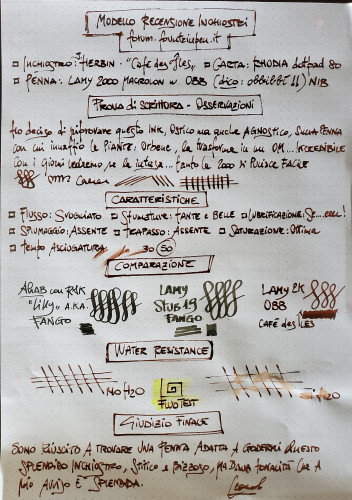 Modello Recensione Inchiostri
forum.fountainpen.it
Inchiostro: J. Herbin - "Café des Îles" Carta: Rhodia dotpad 80
Penna: Lamy 2000 Macrolon w OBB (dico: obbibbi !!) Nib
Prova di Scrittura - Osservazioni
Ho deciso di riprovare questo ink, ostico ma anche agnostico, sulla penna
con cui innaffio le piante. Orbene, la trasforma in un OM... Incredibile
con i giorni vedremo se la intasa... tanto la 2000 si pulisce facile
Caratteristiche
Flusso: Svogliato Sfumature: Tante e Belle Lubrificazione: Se... eeee!
Spiumaggio: Assente Trapasso: Assente Saturazione: Ottima
Tempo Asciugatura 30 50
Comparazione
Ahab con R&K Lamy Lamy 2K
"Lilly" a.k.a. Stub 1.9 OBB
Fango Fango Café des Îles
Water Resistance
No H2O Fluo Test Si H2O
Giudizio Finale
Sono riuscito a trovare una penna adatta a godermi questo
splendido inchiostro, stitico e bizzoso, ma dalla tonalità che a
mio avviso è splendida.